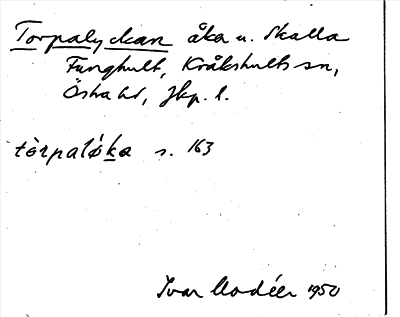 Torpalyckan åka u. Skalla
Funghult, Kråkshults sn,
Östra hd, Jkp. l.
tòrpalỳka s. 163
Ivar Modéer 1950